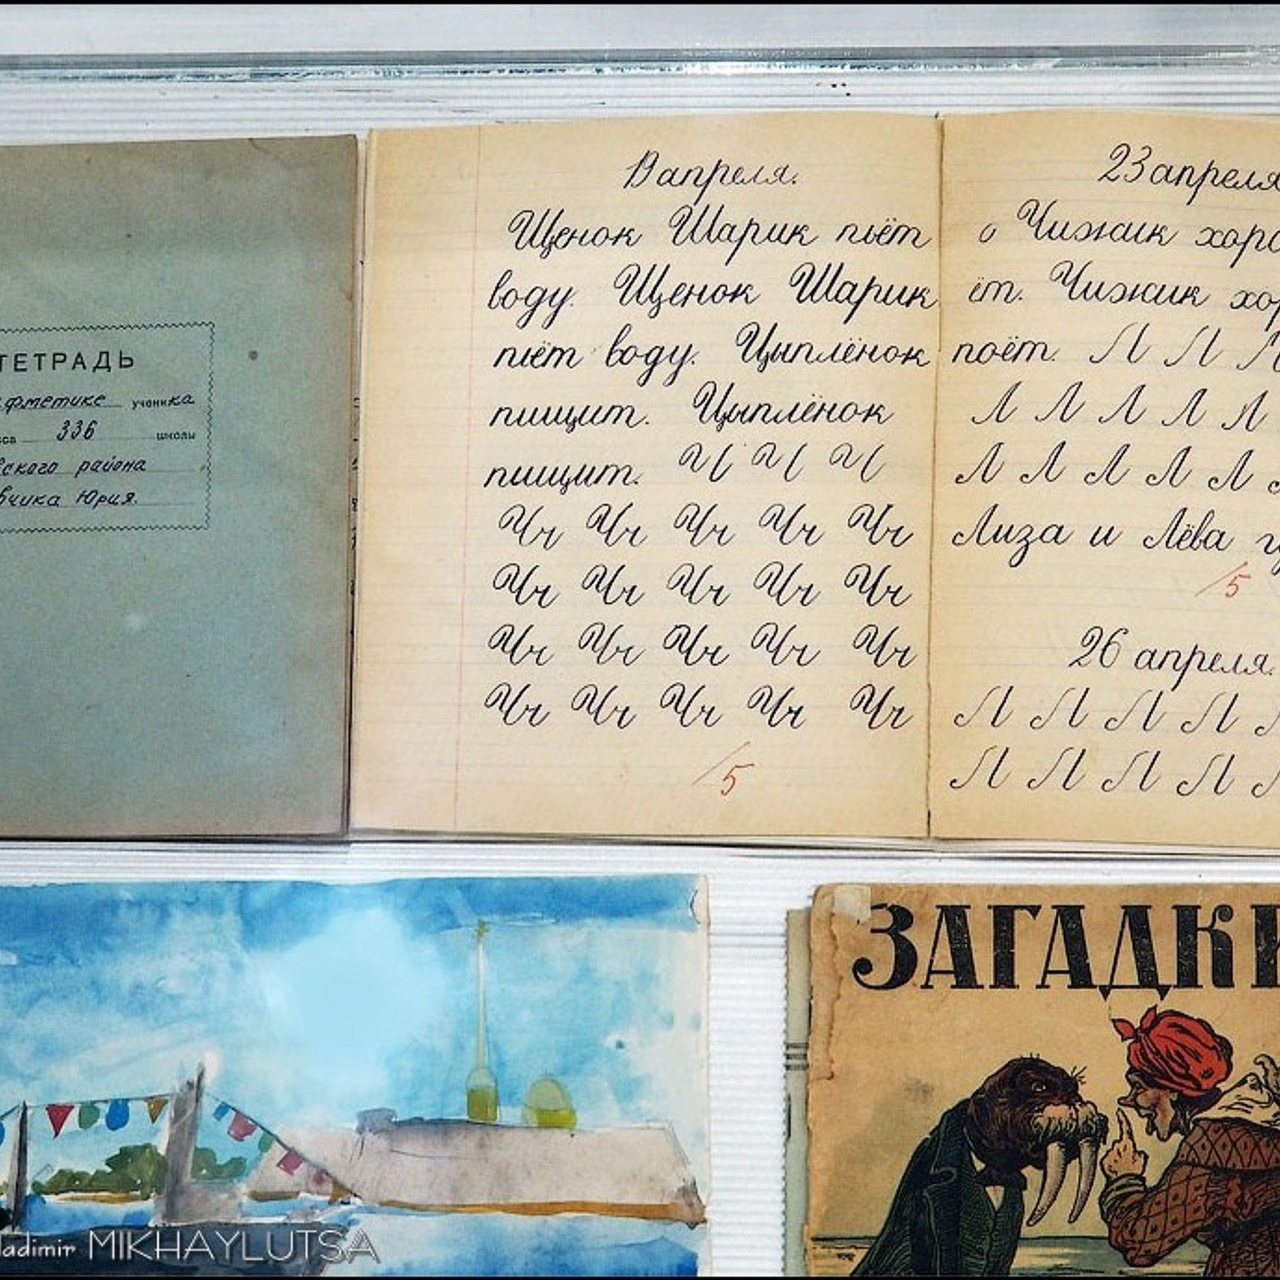 ТЕТРАДЬ
ученика
336 школы
района
Юрия.
апреля.
Щенок Шарик пьёт
воду. Щенок Шарик
пьёт воду. Цыплёнок
пищит. Цыплёнок
пищит. И И И
Чч Чч Чч Чч Чч
Чч Чч Чч Чч Чч
Чч Чч Чч Чч Чч
Чч Чч Чч Чч Чч
5
23 апреля
о Чижик хоро
ёт. Чижик хор
поёт. Л Л Л
Л Л Л Л Л
Л Л Л Л Л
Лиза и Лёва
5
26 апреля.
Л Л Л Л Л
Л Л Л Л Л
ЗАГАДКИ
ladimir MIKHAYLUTSA